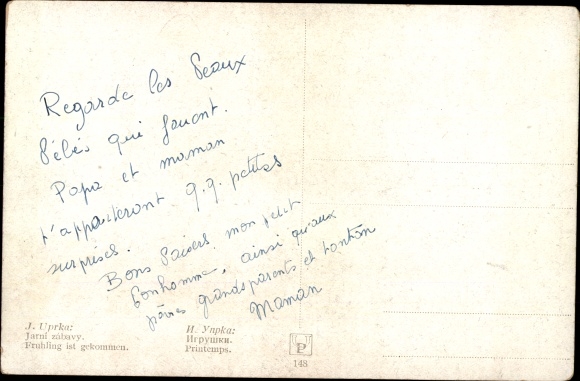 Regarde les beaux
bébés qui jouent.
Papa et maman
t'apporteront q.q. petites
surprises.
Bons baisers, mon petit
bonhomme, ainsi qu'aux
grandsparents et tonton
Maman
J. Uprka:
Jarní zábavy.
Frühling ist gekommen.
И. Упрка:
Игрушки.
Printemps.
P
148